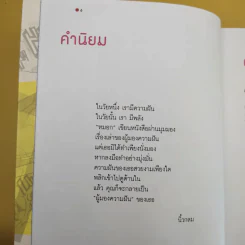 คำนิยม
ในวัยหนึ่ง เรามีความฝัน
ในวัยนั้น เรา มีพลัง
"หมอก" เขียนหนังสือผ่านมุมมอง
เรื่องเล่าของผู้มองความฝัน
แต่เธอมิได้ทำเพียงนั่งมอง
หากลงมือทำอย่างมุ่งมั่น
ความฝันของเธอสวยงามเพียงใด
พลิกเข้าไปดูด้านใน
แล้ว คุณก็จะกลายเป็น
"ผู้มองความฝัน" ของเธอ
นิ้วกลม